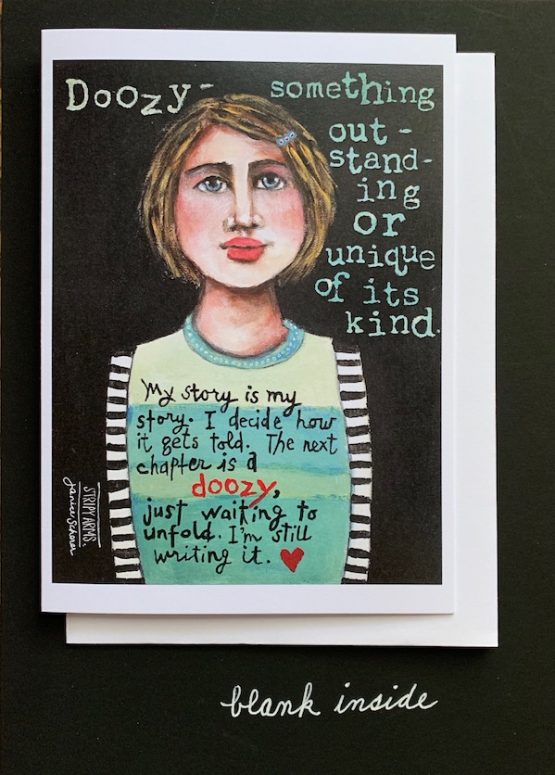 Doozy - something
out -
stand-
ing
or
unique
of its
kind.
My story is my
story. I decide how
it gets told. The next
chapter is a
doozy,
just waiting to
unfold. I'm still
writing it.
STRIPY ARMS.
Janice Scherer
blank inside